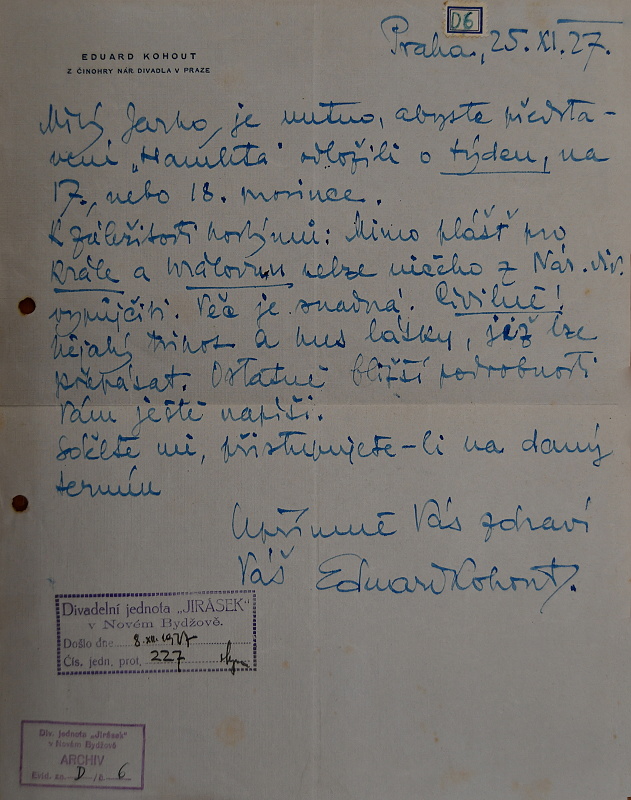 D6
EDUARD KOHOUT
Z ČINOHRY NÁR. DIVADLA V PRAZE
Praha, 25. XI. 27.
Milý Jarko, je nutno, abyste předsta-
vení „Hamleta" odložili o týden, na
17., nebo 18. prosince.
K záležitosti kostýmů: Mimo plášť pro
krále a královnu nelze něčeho z Nár. div.
vypůjčiti. Věc je snadná. Civilně!
Nějaký trikot a kus látky, jíž lze
přepásat. Ostatně bližší podrobnosti
Vám ještě napíši.
Sdělte mi, přistupujete-li na daný
termín
Upřímně Vás zdraví
Váš Eduard Kohout.
Divadelní jednota „JIRÁSEK"
v Novém Bydžově.
Došlo dne 8. XII. 1927
Čís. jedn. prot. 227
Div. jednota „Jirásek"
v Novém Bydžově
ARCHIV
Evid. zn. D/č. 6